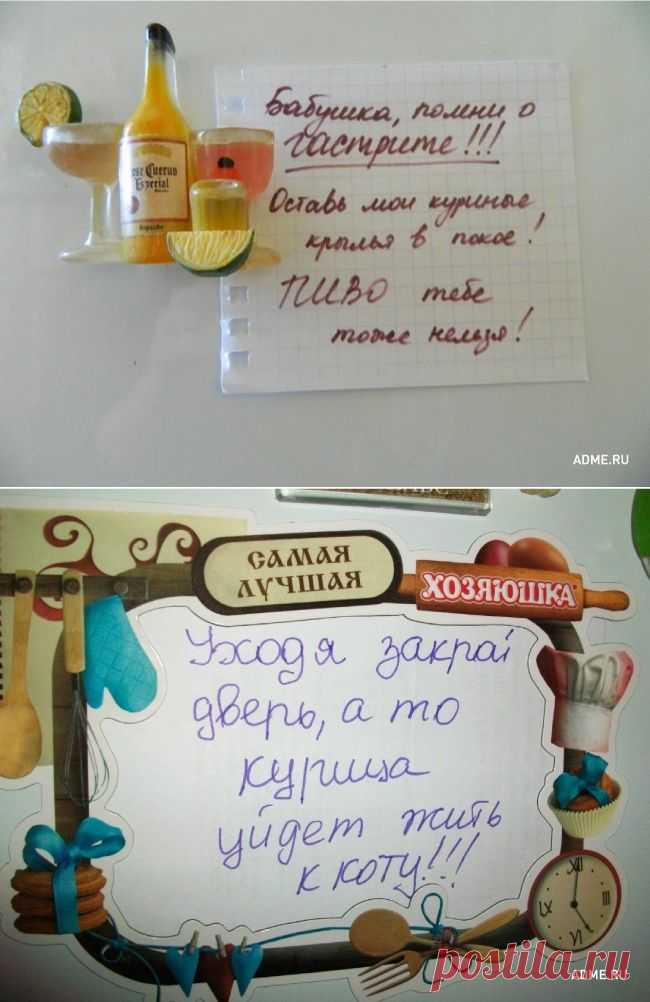 Бабушка, помни о
гастрите!!!
Оставь мои куриные
крылья в покое!
ПИВО тебе
тоже нельзя!
Jose Cuervo
Especial
ADME.RU
САМАЯ
ЛУЧШАЯ
ХОЗЯЮШКА
Уходя закрай
дверь, а то
курица
уйдет жить
к коту!!!
ADME.RU
postila.ru